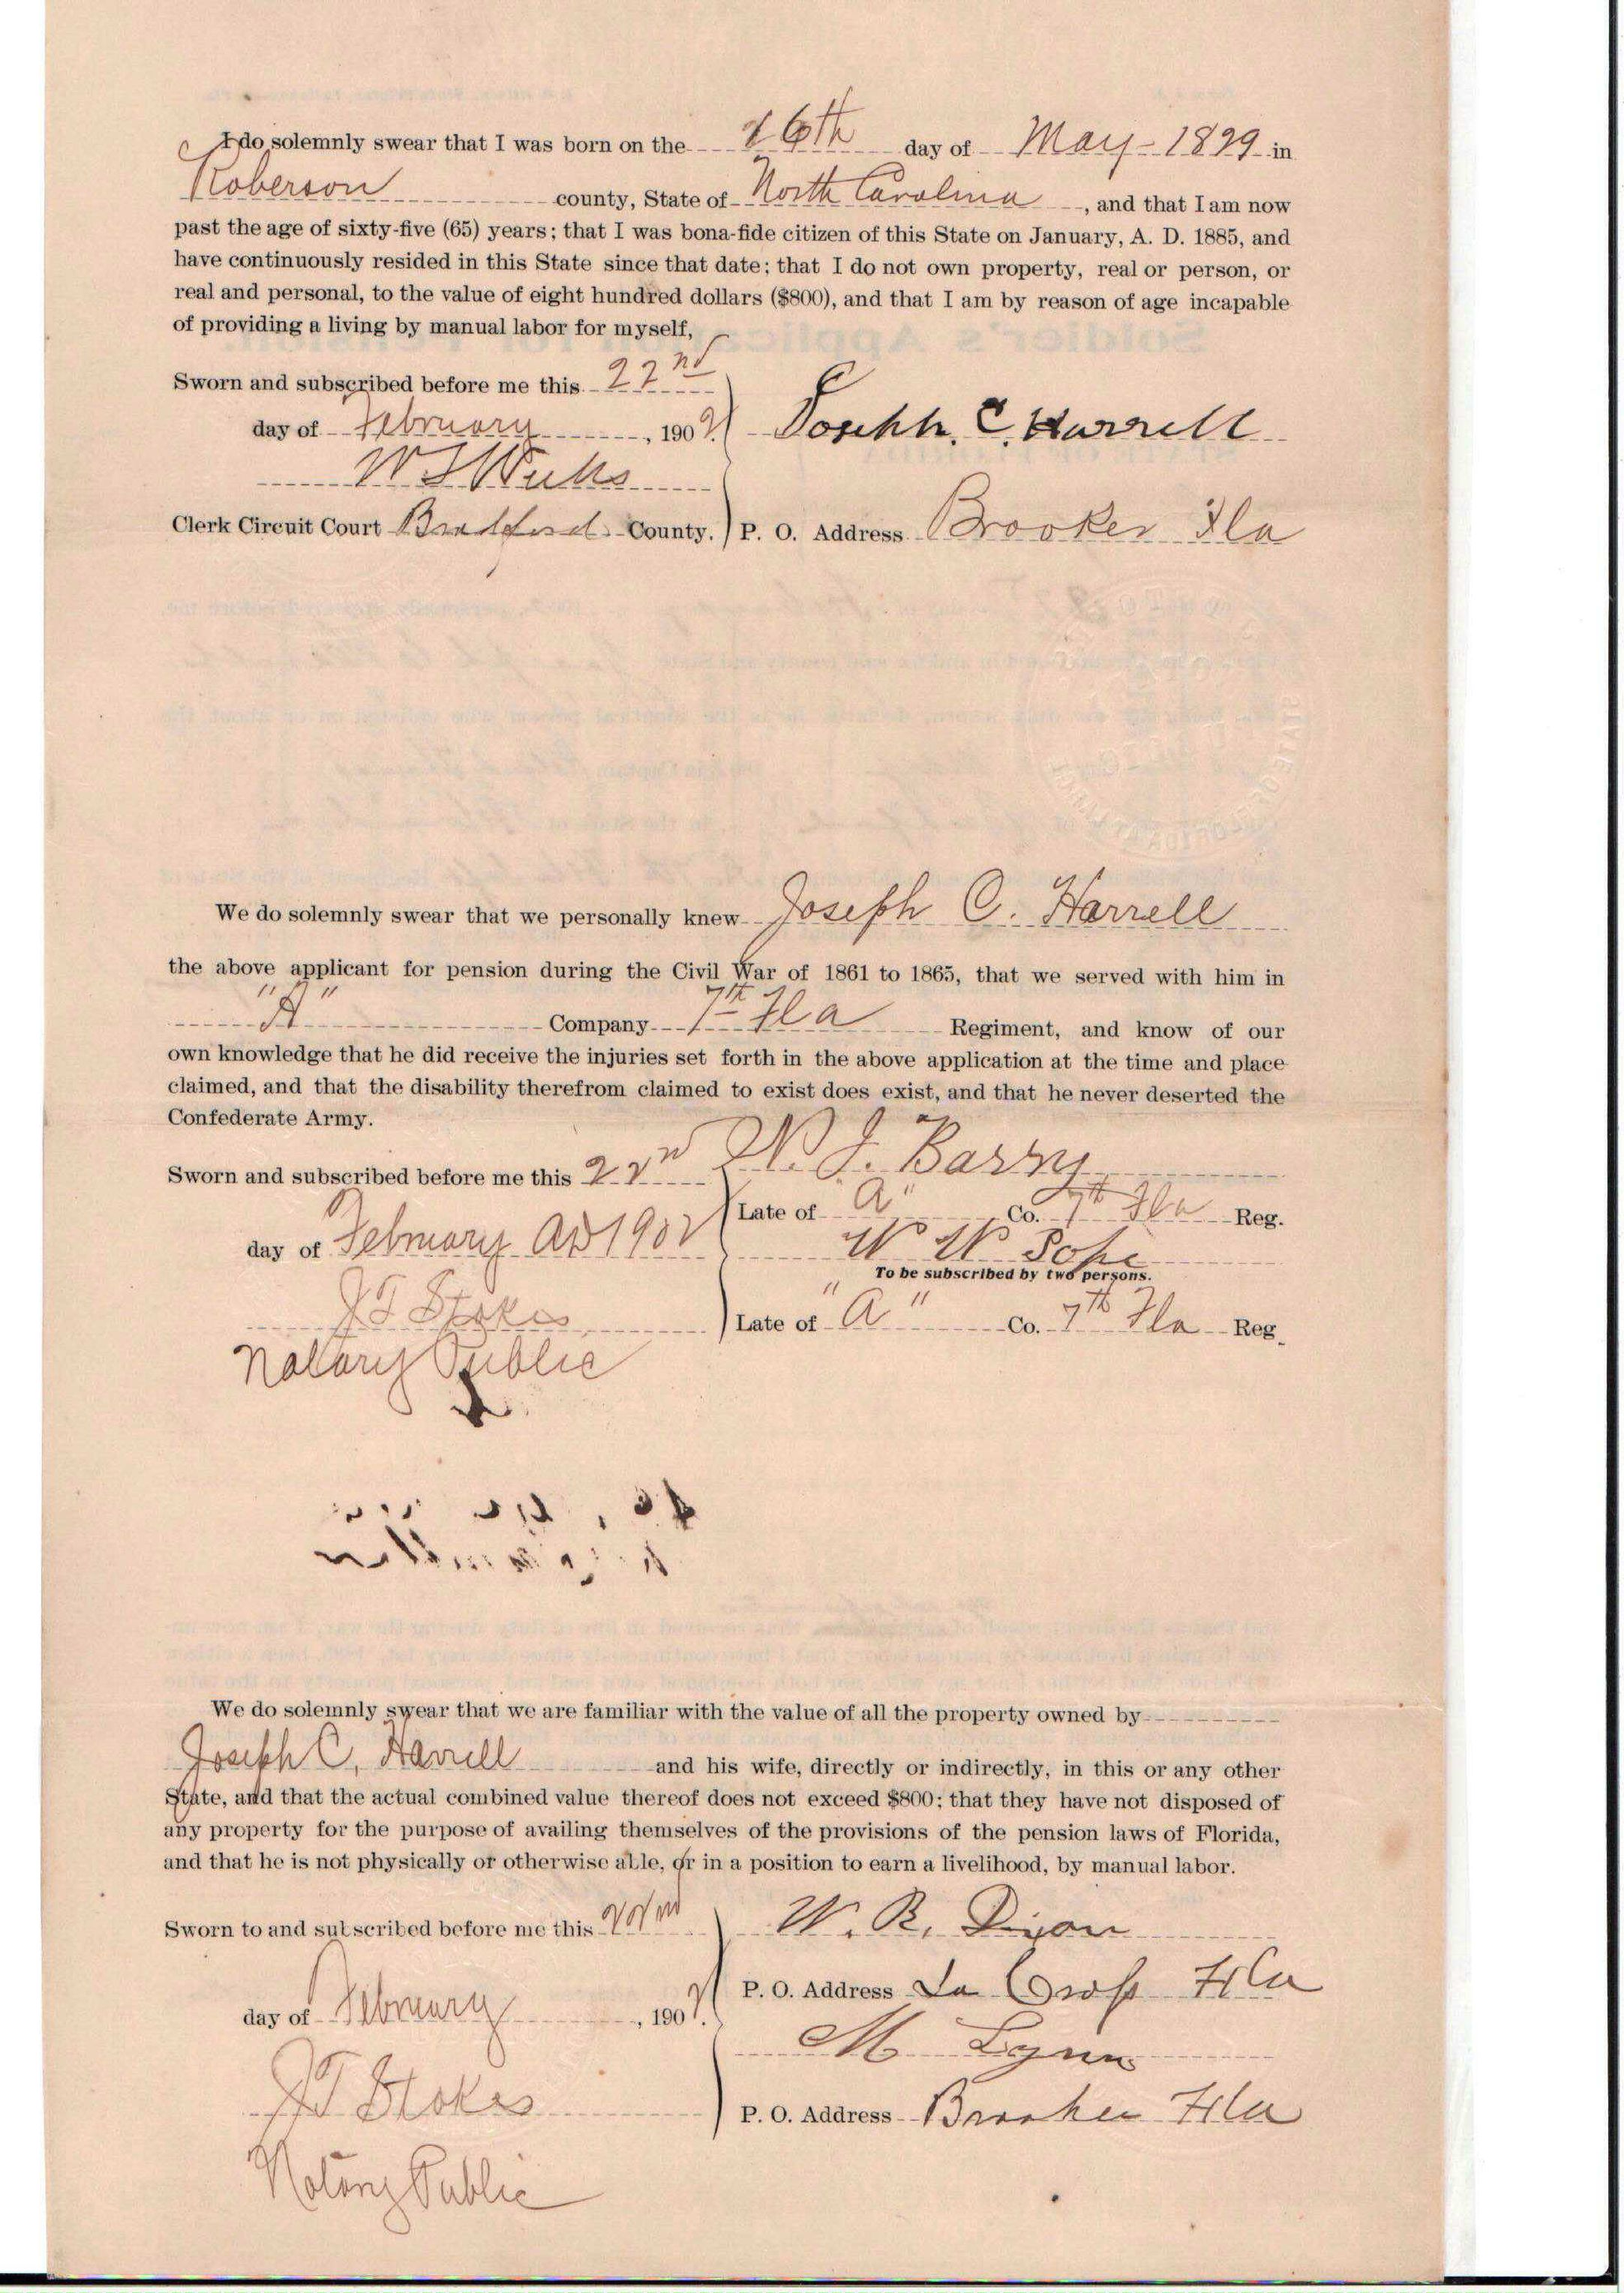 I do solemnly swear that I was born on the 16th day of May - 1829 in
Roberson county, State of North Carolina, and that I am now
past the age of sixty-five (65) years; that I was bona-fide citizen of this State on January, A. D. 1885, and
have continuously resided in this State since that date; that I do not own property, real or person, or
real and personal, to the value of eight hundred dollars ($800), and that I am by reason of age incapable
of providing a living by manual labor for myself,
Sworn and subscribed before me this 22nd
day of February, 1902. Joseph. C. Harrell
Clerk Circuit Court Bradford County. P. O. Address Brooker Fla
We do solemnly swear that we personally knew Joseph C. Harrell
the above applicant for pension during the Civil War of 1861 to 1865, that we served with him in
"A" Company 7th Fla Regiment, and know of our
own knowledge that he did receive the injuries set forth in the above application at the time and place
claimed, and that the disability therefrom claimed to exist does exist, and that he never deserted the
Confederate Army.
Sworn and subscribed before me this 22nd W. J. Barry
Late of "A" Co. 7th Fla Reg.
day of February AD 1902 W W Pope
To be subscribed by two persons.
J T Stokes Late of "A" Co. 7th Fla Reg
Notary Public
We do solemnly swear that we are familiar with the value of all the property owned by
Joseph C. Harrell and his wife, directly or indirectly, in this or any other
State, and that the actual combined value thereof does not exceed $800; that they have not disposed of
any property for the purpose of availing themselves of the provisions of the pension laws of Florida,
and that he is not physically or otherwise able, or in a position to earn a livelihood, by manual labor.
Sworn to and subscribed before me this 22nd W. R. Dixon
P. O. Address La Cross Fla
day of February, 1902.
M Lynn
J T Stokes P. O. Address Brooker Fla
Notary Public